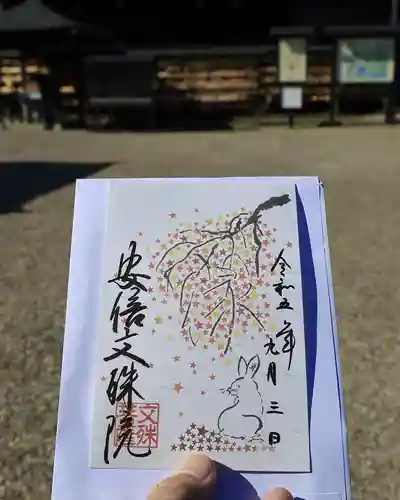 令和五年
元月三日
安倍文殊院
文殊